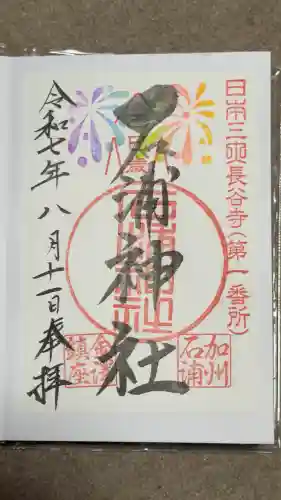 日本三所長谷寺(第一番所)
石浦神社
加州
石浦
金澤
鎮座
令和七年八月十一日奉拝